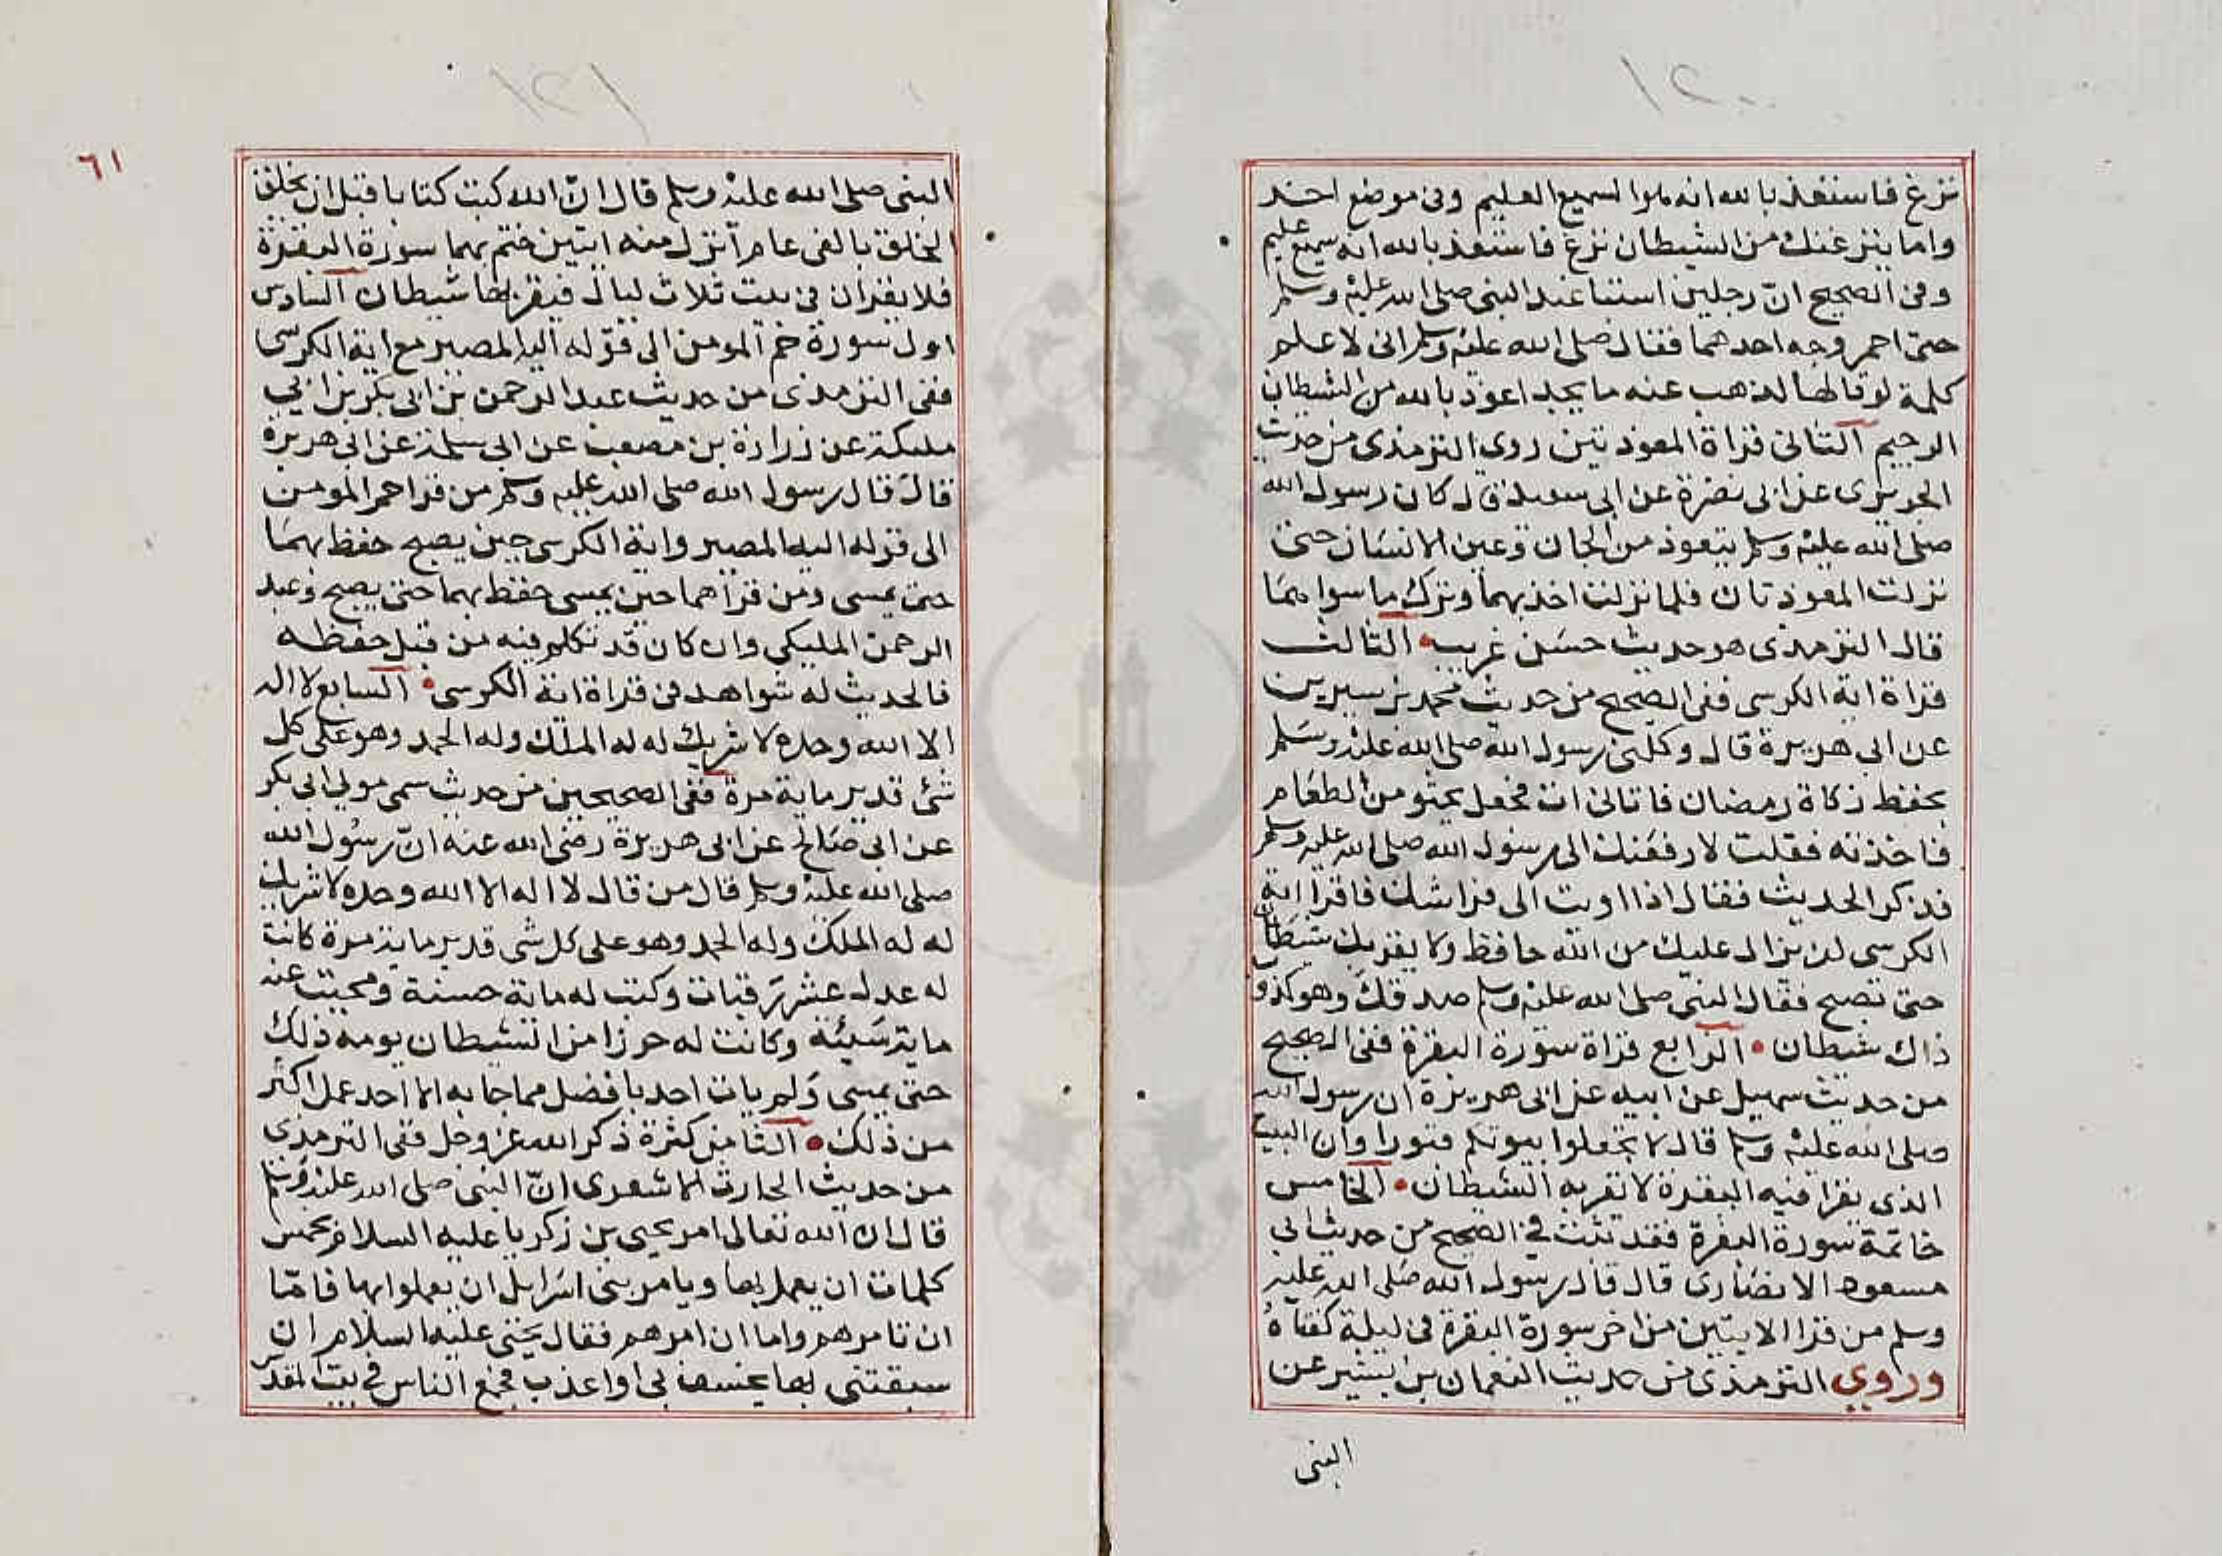 ١٢٠
نزغ فاستعذ بالله انه هوا لسميع العليم وفى موضع اخر
واما ينزغنك من الشيطان نزغ فاستعذ بالله انه سميع عليم
وفى الصحيح انّ رجلين استبا عند النبى صلى الله عليه وسلم
حتى احمر وجه احدهما فقال صلى الله عليه وسلم انى لا علم
كلمة لو قالها لذهب عنه ما يجد اعوذ بالله من الشيطان
الرجيم الثانى قراة المعوذتين روى الترمذى من حديث
الجريرى عن ابى نضرة عن ابى سعيد قال كان رسول الله
صلى الله عليه وسلم يتعوذ من الجان وعين الانسان حتى
نزلت المعوذتان فلما نزلت اخذ بهما وترك ما سواهما
قال الترمذى هو حديث حسن غريب الثالث
قراة اية الكرسى ففى الصحيح من حديث محمد بن سيرين
عن ابى هريرة قال وكلنى رسول الله صلى الله عليه وسلم
بحفظ زكاة رمضان فاتانى ات فجعل يحثو من الطعام
فاخذته فقلت لارفعنك الى رسول الله صلى الله عليه وسلم
فذكر الحديث فقال اذا اويت الى فراشك فاقرا اية
الكرسى لن يزال عليك من الله حافظ ولا يقربك شيطان
حتى تصبح فقال النبى صلى الله عليه وسلم صدقك وهو كذو
ذاك شيطان الرابع قراة سورة البقرة ففى الصحيح
من حديث سهيل عن ابيه عن ابى هريرة ان رسول الله
صلى الله عليه وسلم قال لا تجعلوا بيوتكم قبورا وان البيت
الذى يقرا فيه البقرة لا يقربه الشيطان الخامس
خاتمة سورة البقرة فقد ثبت فى الصحيح من حديث ابى
مسعود الانصارى قال قال رسول الله صلى الله عليه
وسلم من قرا الايتين من اخر سورة البقرة فى ليلة كفتاه
وروي الترمذى من حديث النعمان بن بشير عن
النبى
١٢١
٦١
النبى صلى الله عليه وسلم قال انّ الله كتب كتابا قبل ان يخلق
الخلق بالفى عام انزل منه ايتين ختم بهما سورة البقرة
فلا يقران فى بيت ثلاث ليال فيقربها شيطان السادس
اول سورة حم المومن الى قوله اليه المصير مع اية الكرسى
ففى الترمذى من حديث عبد الرحمن بن ابى بكر بن ابي
مليكة عن زرارة بن مصعب عن ابى سلمة عن ابى هريرة
قال قال رسول الله صلى الله عليه وسلم من قرا حم المومن
الى قوله اليه المصير واية الكرسى حين يصبح حفظ بهما
حتى يمسى ومن قراهما حين يمسى حفظ بهما حتى يصبح وعبد
الرحمن المليكى وان كان قد تكلم فيه من قبل حفظه
فالحديث له شواهد فى قراة اية الكرسى السابع لا اله
الا الله وحده لا شريك له له الملك وله الحمد وهو على كل
شئ قدير ماية مرة ففى الصحيحين من حديث سمى مولى ابى بكر
عن ابى صالح عن ابى هريرة رضى الله عنه انّ رسول الله
صلى الله عليه وسلم قال من قال لا اله الا الله وحده لا شريك
له له الملك وله الحمد وهو على كل شى قدير ماية مرة كانت
له عدل عشر رقبات وكتب له ماية حسنة ومحيت عنه
ماية سيئة وكانت له حرزا من الشيطان يومه ذلك
حتى يمسى ولم يات احد بافضل مما جا به الا احد عمل اكثر
من ذلك الثامن كثرة ذكر الله عز وجل ففى الترمذى
من حديث الحارث الاشعرى انّ النبى صلى الله عليه وسلم
قال ان الله تعالى امر يحيى بن زكريا عليه السلام بخمس
كلمات ان يعمل بها ويامر بنى اسرايل ان يعملوا بها فامّا
ان تامرهم واما ان امرهم فقال يحيى عليه السلام ان
سبقتنى بها يخسف بى او اعذب فجمع الناس فى بيت المقدس